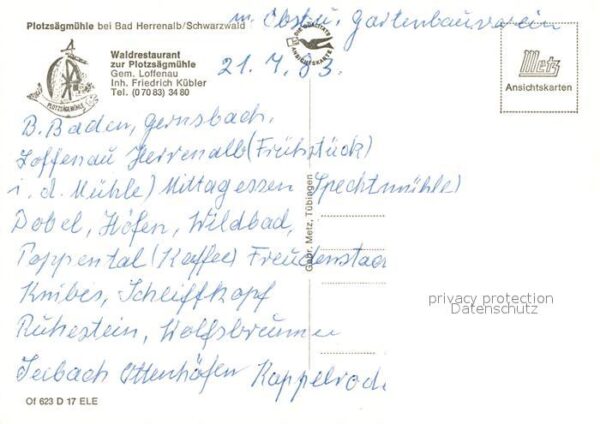 Plotzsägmühle bei Bad Herrenalb/Schwarzwald
m. Obst u. Gartenbauverein
Waldrestaurant
zur Plotzsägmühle
Gem. Loffenau
Inh. Friedrich Kübler
Tel. (0 70 83) 34 80
PLOTZSÄGMÜHLE
21.4.83.
Metz
Ansichtskarten
B. Baden, Gernsbach,
Loffenau Herrenalb (Frühstück)
i. d. Mühle) Mittagessen Spechtmühle)
Dobel, Höfen, Wildbad,
Poppental (Kaffee) Freudenstad
Knibes, Schliffkopf
Ruhestein, Wolfsbrunnen
Seibach Ottenhöfen Kappelrod
Gebr. Metz, Tübingen
privacy protection
Datenschutz
Of 623 D 17 ELE